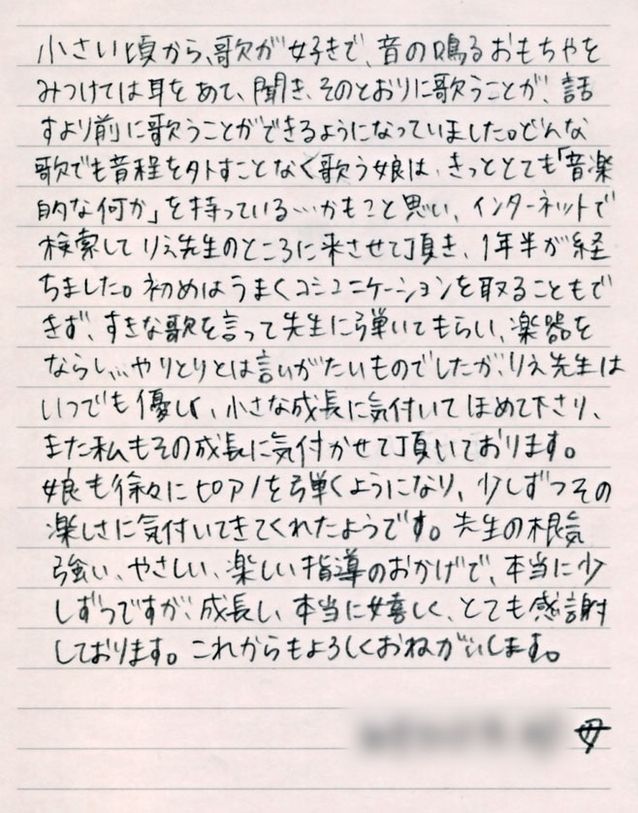 小さい頃から、歌が好きで、音の鳴るおもちゃを
みつけては耳をあて、聞き、そのとおりに歌うことが、話
すより前に歌うことができるようになっていました。どんな
歌でも音程を外すことなく歌う娘は、きっととても「音楽
的な何か」を持っている…かも?と思い、インターネットで
検索してりえ先生のところに来させて頂き、1年半が経
ちました。初めはうまくコミュニケーションを取ることもで
きず、すきな歌を言って先生に弾いてもらい、楽器を
ならし…やりとりとは言いがたいものでしたが、りえ先生は
いつでも優しく、小さな成長に気付いてほめて下さり、
また私もその成長に気付かせて頂いております。
娘も徐々にピアノを弾くようになり、少しずつその
楽しさに気付いてきてくれたようです。先生の根気
強い、やさしい、楽しい指導のおかげで、本当に少
しずつですが、成長し、本当に嬉しく、とても感謝
しております。これからもよろしくおねがいします。
母